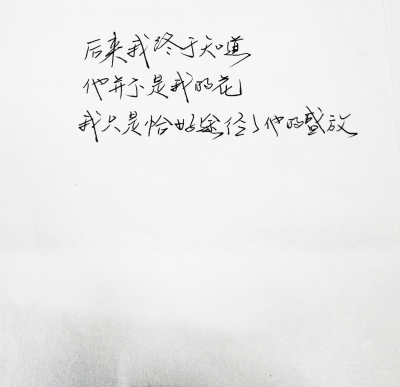 后来我终于知道
他并不是我的花
我只是恰好途径了他的盛放